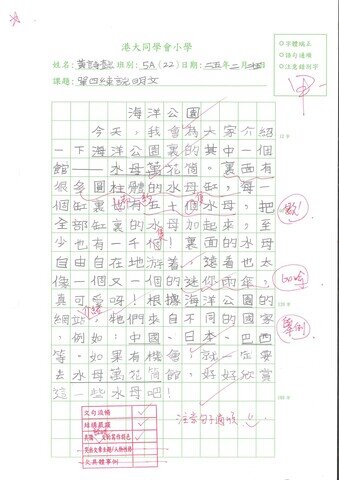 港大同學會小學
姓名： 班別：5A（22）日期： 年二月 日
課題：第四練說明文
◎字體端正
◎語句通順
◎注意錯別字
海洋公園
今天，我會為大家介紹
一下海洋公園裏的其中一個
館——水母萬花筒。裏面有
很多圓柱體的水母缸，每一
個缸裏也有五十個水母，把
全部缸裏的水母加起來，至
少也有一千個！裏面的水母
自由自在地游着，遠看也太
像一個又一個的迷你雨傘，
真可愛呀！根據海洋公園的
網站，牠們來自不同的國家
，例如：中國、日本、巴西
等。如果有機會！就一定要
去水母萬花筒館，好好欣賞
這一些水母吧！
數！
比喻
舉例
介紹
12字
120字
180字
文句流暢
結構嚴嚴
注意句子通順